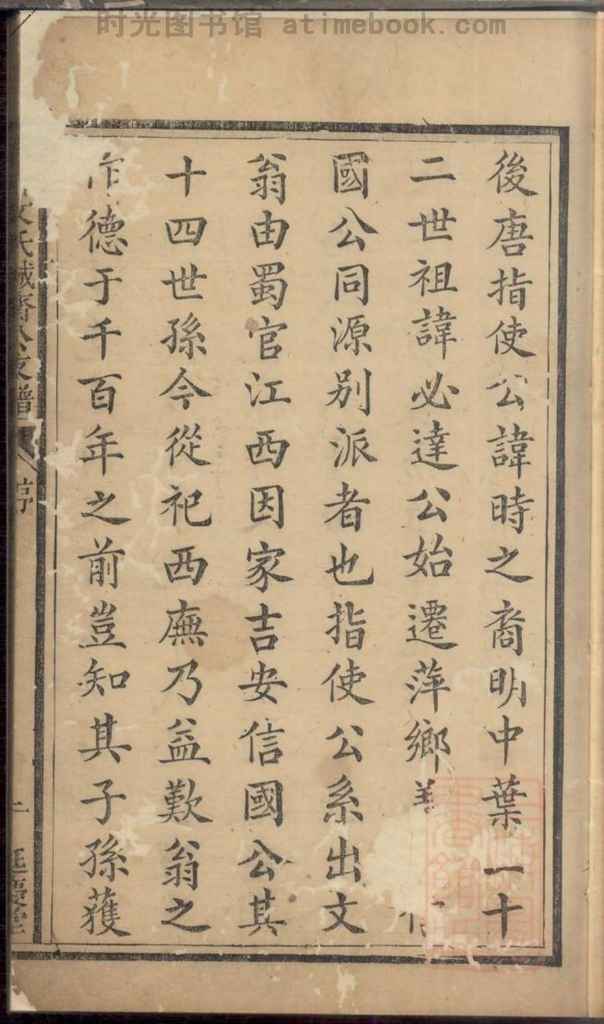 时光图书馆 atimebook.com
後唐指使公諱時之裔明中葉一十
二世祖諱必達公始遷萍鄉
國公同源别派者也指使公系出文
翁由蜀官江西因家吉安信國公其
十四世孫今從祀西廡乃益歎翁之
德于千百年之前豈知其子孫獲
氏誠齋公支譜
序
二